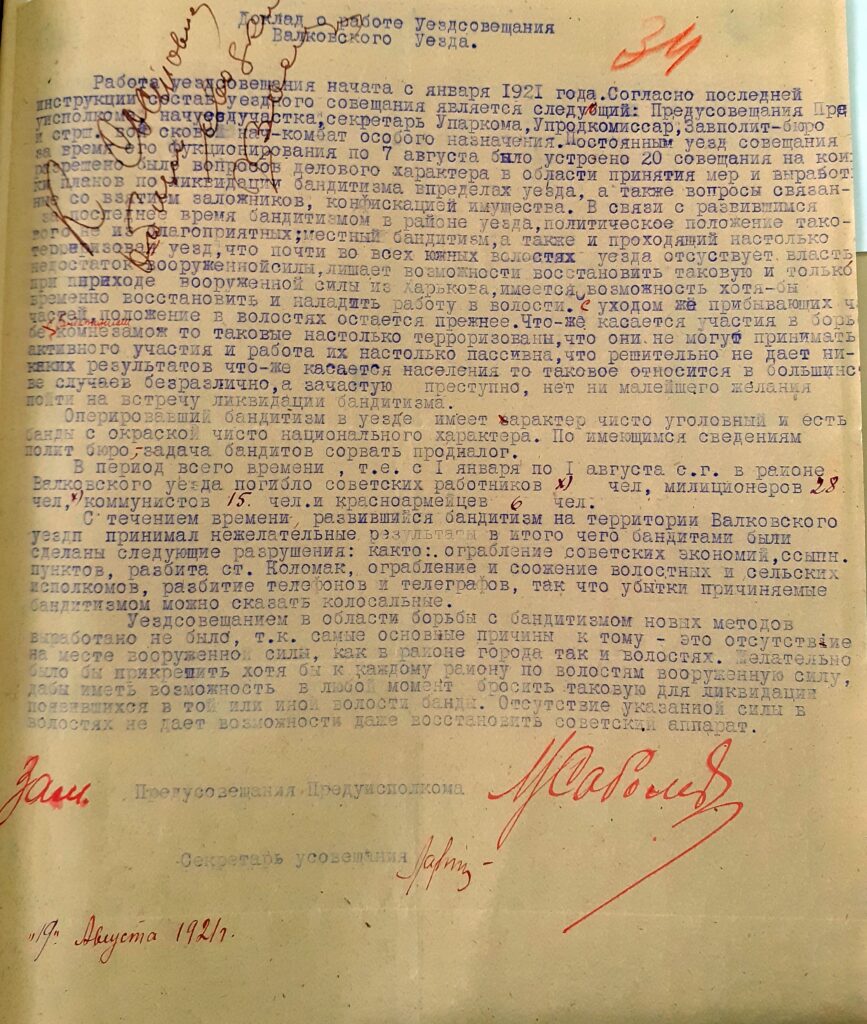 Доклад о работе Уездсовещания
Валковского Уезда.
34
Работа уездсовещания начата с января 1921 года.Согласно последней
инструкции состав уездного совещания является следующий: Предусовещания Пре
уисполкома, начуездучастка,секретарь Упаркома,Упродкомиссар,Завполит-бюро
и нач-комбат особого назначения. Постоянным уезд совещания
за время его фукционирования по 7 августа было устроено 20 совещания на кои
разрешено было вопросов делового характера в области принятия мер и выработ
ки планов по ликвидации бандитизма впределах уезда, а также вопросы связан-
ные со взятием заложников, конфискацией имущества. В связи с развившимся
за последнее время бандитизмом в районе уезда,политическое положение тако-
вого не из благоприятных;местный бандитизм,а также и проходящий настолько
терроризовал уезд,что почти во всех южных волостях уезда отсуствует власть
недостаток вооруженнойсилы,лишает возможности восстановить таковую и только
при пириходе вооруженной силы из Харькова,имеется возможность хотя-бы
временно восстановить и наладить работу в волости. С уходом же прибывающих ч
частей,положение в волостях остается прежнее.Что-же касается участия в борь
бе комнезамож то таковые настолько терроризованы,что они не могут принимать
активного участия и работа их настолько пассивна,что решительно не дает ни-
каких результатов что-же касается населения то таковое относится в большинс
ве случаев безразлично,а зачастую преступно, нет ни малейшего желания
пойти на встречу ликвидации бандитизма.
Оперировавший бандитизм в уезде имеет характер чисто уголовный и есть
банды с окраской чисто национального характера. По имеющимся сведениям
полит бюро,-задача бандитов сорвать продналог.
В период всего времени , т.е. с I января по I августа с.г. в районе
Валковского уезда погибло советских работников х) чел, милиционеров 28
чел,х)коммунистов 15. чел.и красноармейцев 6 чел.
С течением времени, развившийся бандитизм на территории Валковского
уездп принимал нежелательные результаты в итого чего бандитами были
сделаны следующие разрушения: както:. ограбление советских экономий,ссыпн.
пунктов, разбита ст. Коломак, ограбление и соожение волостных и сельских
исполкомов, разбитие телефонов и телеграфов, так что убытки причиняемые
бандитизмом можно сказать колосальные.
Уездсовещанием в области борьбы с бандитизмом новых методов
выработано не было, т.к. самые основные причины к тому - это отсутствие
на месте вооруженной силы, как в районе города так и волостях. Желательно
было бы прикрепить хотя бы к каждому району по волостям вооруженную силу,
дабы иметь возможность в любой момент бросить таковую для ликвидации
появившихся в той или иной волости банды. Отсутствие указанной силы в
волостях не дает возможности даже восстановить советский аппарат.
Зам. Предусовещания Предуисполкома МСоболев
Секретарь усовещания
"19" Августа 1921г.